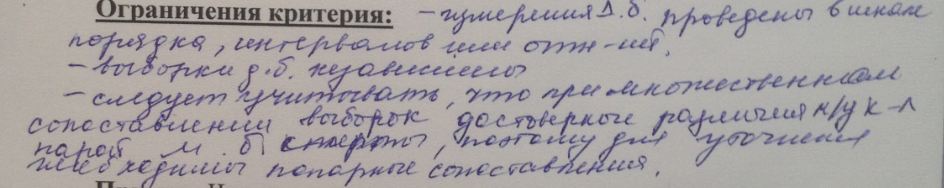 Ограничения критерия: – измерения д.б. проведены в шкале
порядка, интервалов или отн-ий.
– выборки д.б. независимы
– следует учитывать, что при множественном
сопоставлении выборок достоверные различия м/у к-л
парой м. б. стерты, поэтому для уточнения
необходимы попарные сопоставления.